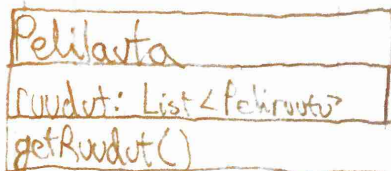 Pelilauta
ruudut: List<Peliruutu>
getRuudut()